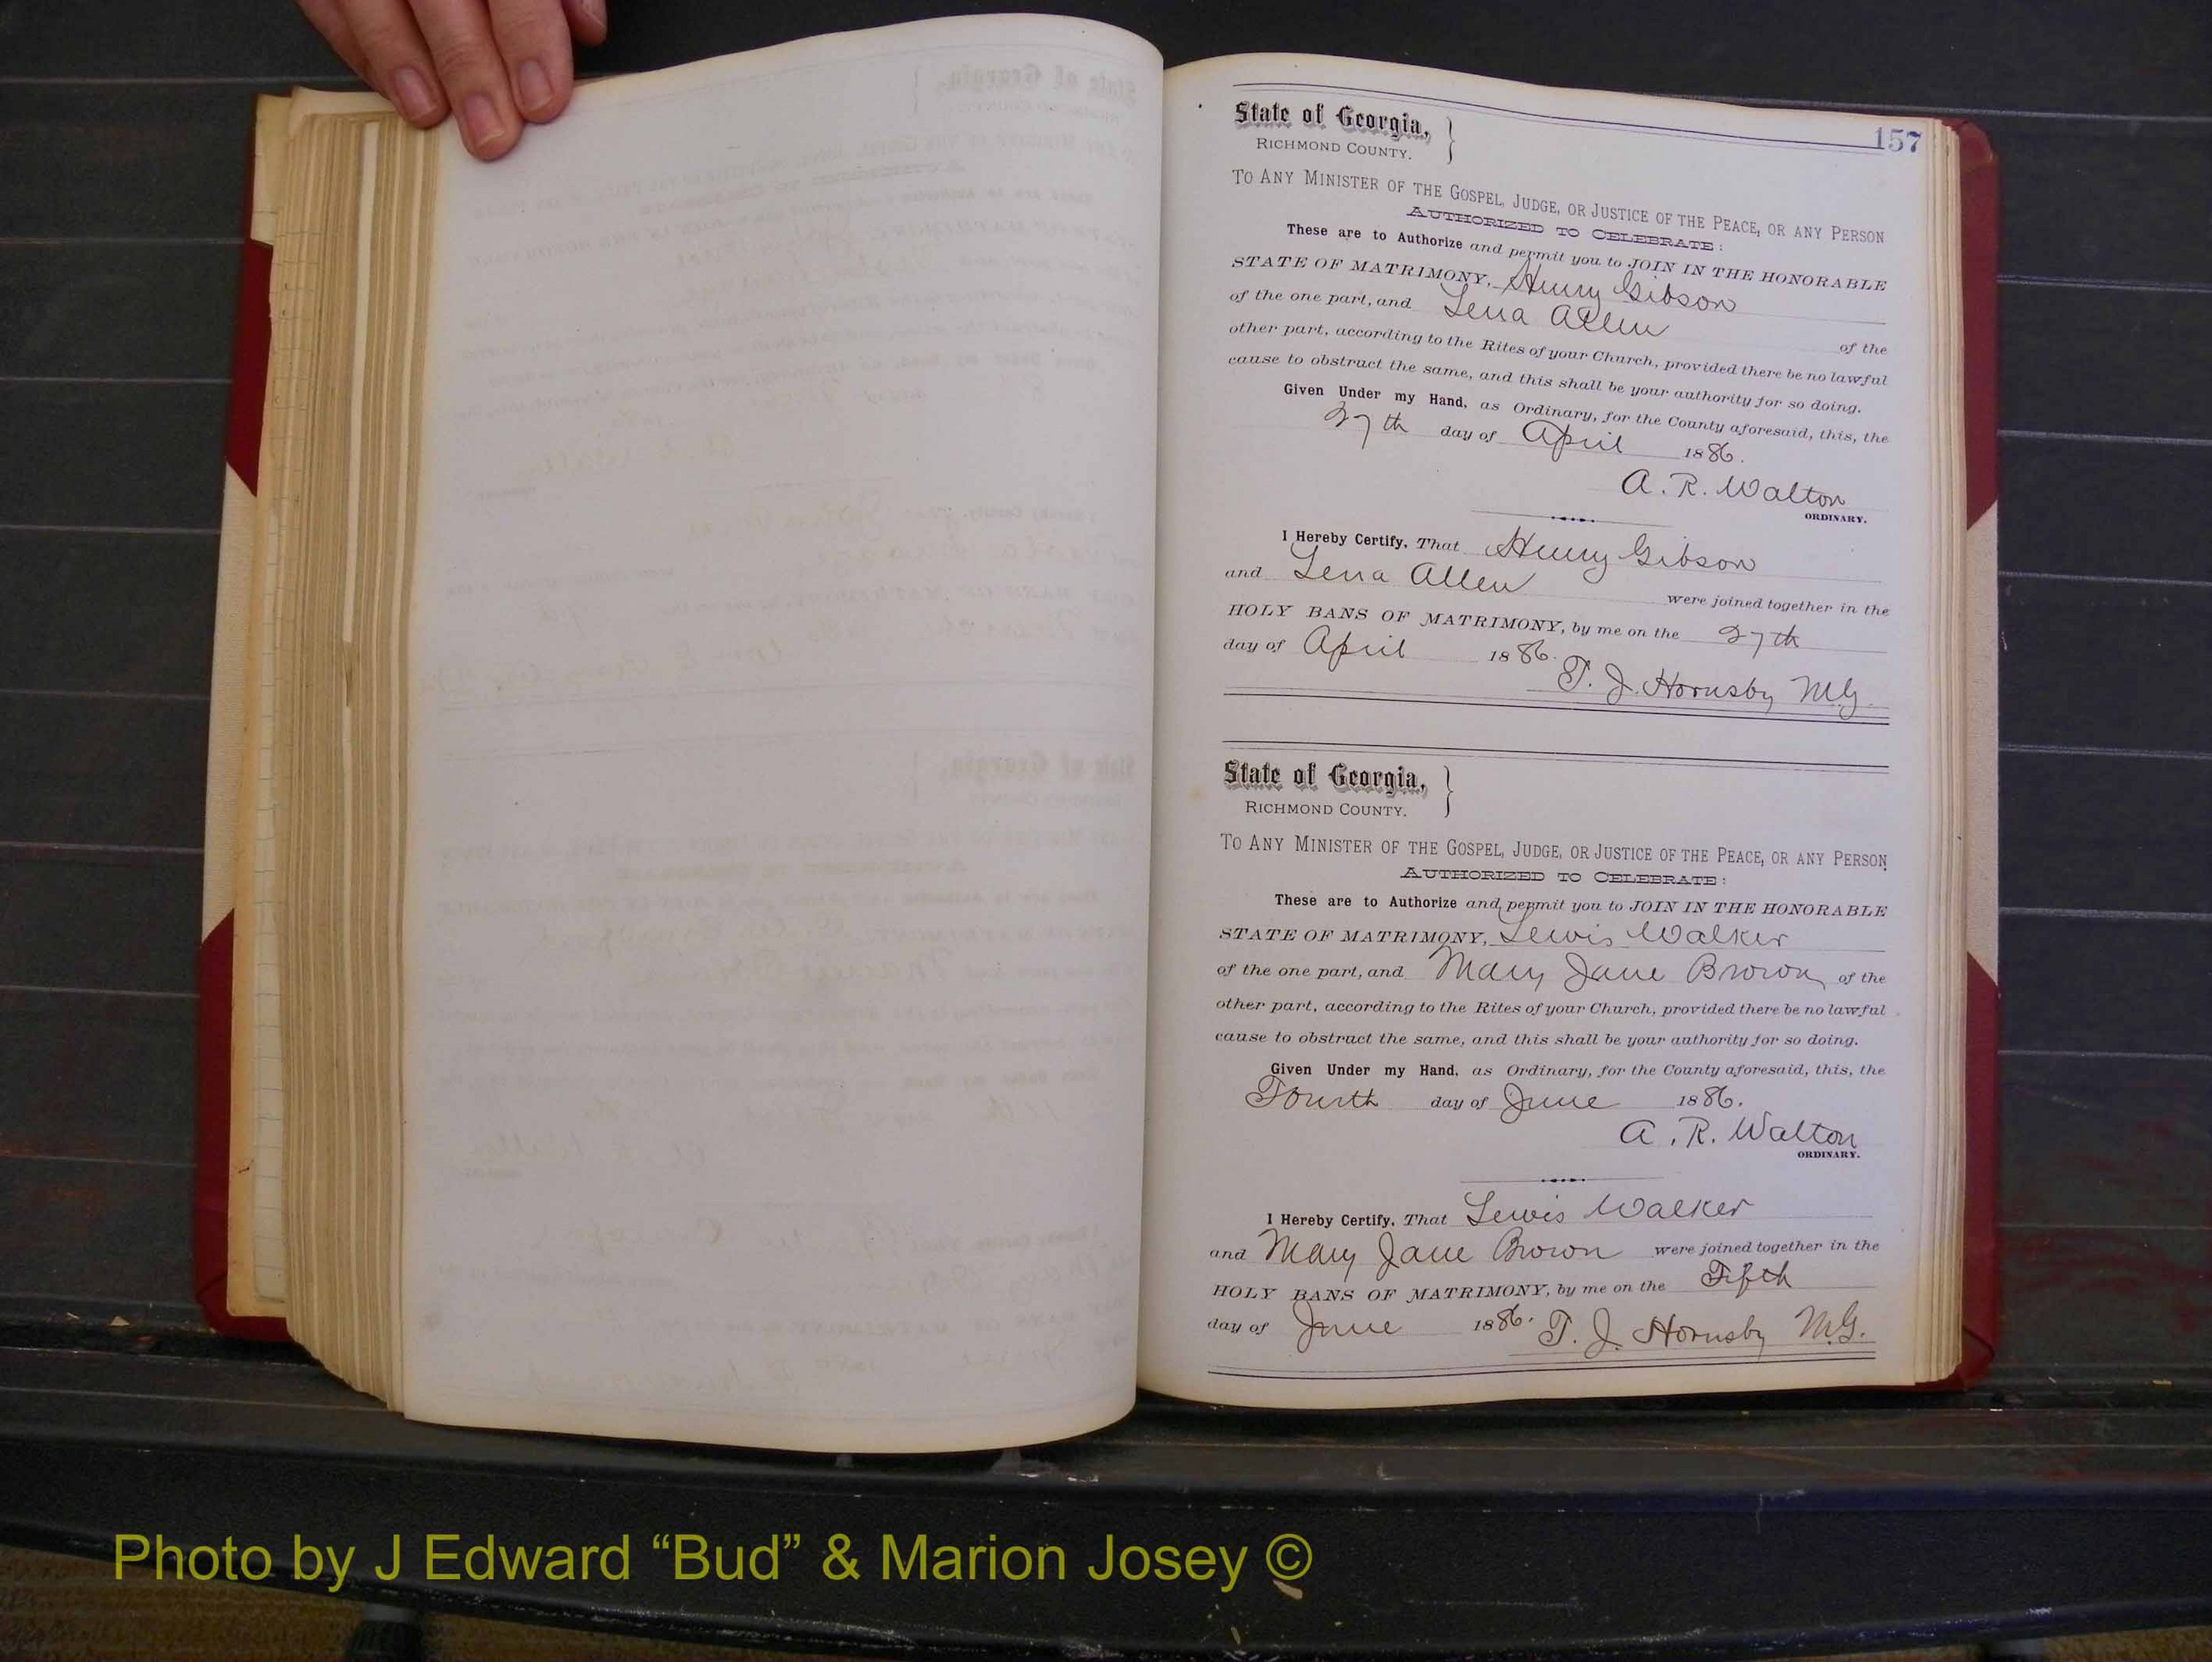 157
State of Georgia, }
RICHMOND COUNTY.
TO ANY MINISTER OF THE GOSPEL, JUDGE, OR JUSTICE OF THE PEACE, OR ANY PERSON
AUTHORIZED TO CELEBRATE:
These are to Authorize and permit you to JOIN IN THE HONORABLE
STATE OF MATRIMONY, Henry Gibson
of the one part, and Lena Allen of the
other part, according to the Rites of your Church, provided there be no lawful
cause to obstruct the same, and this shall be your authority for so doing.
Given Under my Hand, as Ordinary, for the County aforesaid, this, the
27th day of April 1886.
A. R. Walton
ORDINARY.
I Hereby Certify, That Henry Gibson
and Lena Allen were joined together in the
HOLY BANS OF MATRIMONY, by me on the 27th
day of April 1886.
T. J. Hornsby M.G.
State of Georgia, }
RICHMOND COUNTY.
TO ANY MINISTER OF THE GOSPEL, JUDGE, OR JUSTICE OF THE PEACE, OR ANY PERSON
AUTHORIZED TO CELEBRATE:
These are to Authorize and permit you to JOIN IN THE HONORABLE
STATE OF MATRIMONY, Lewis Walker
of the one part, and Mary Jane Brown of the
other part, according to the Rites of your Church, provided there be no lawful
cause to obstruct the same, and this shall be your authority for so doing.
Given Under my Hand, as Ordinary, for the County aforesaid, this, the
Fourth day of June 1886.
A. R. Walton
ORDINARY.
I Hereby Certify, That Lewis Walker
and Mary Jane Brown were joined together in the
HOLY BANS OF MATRIMONY, by me on the Fifth
day of June 1886. T. J. Hornsby M.G.
Photo by J Edward “Bud” & Marion Josey ©